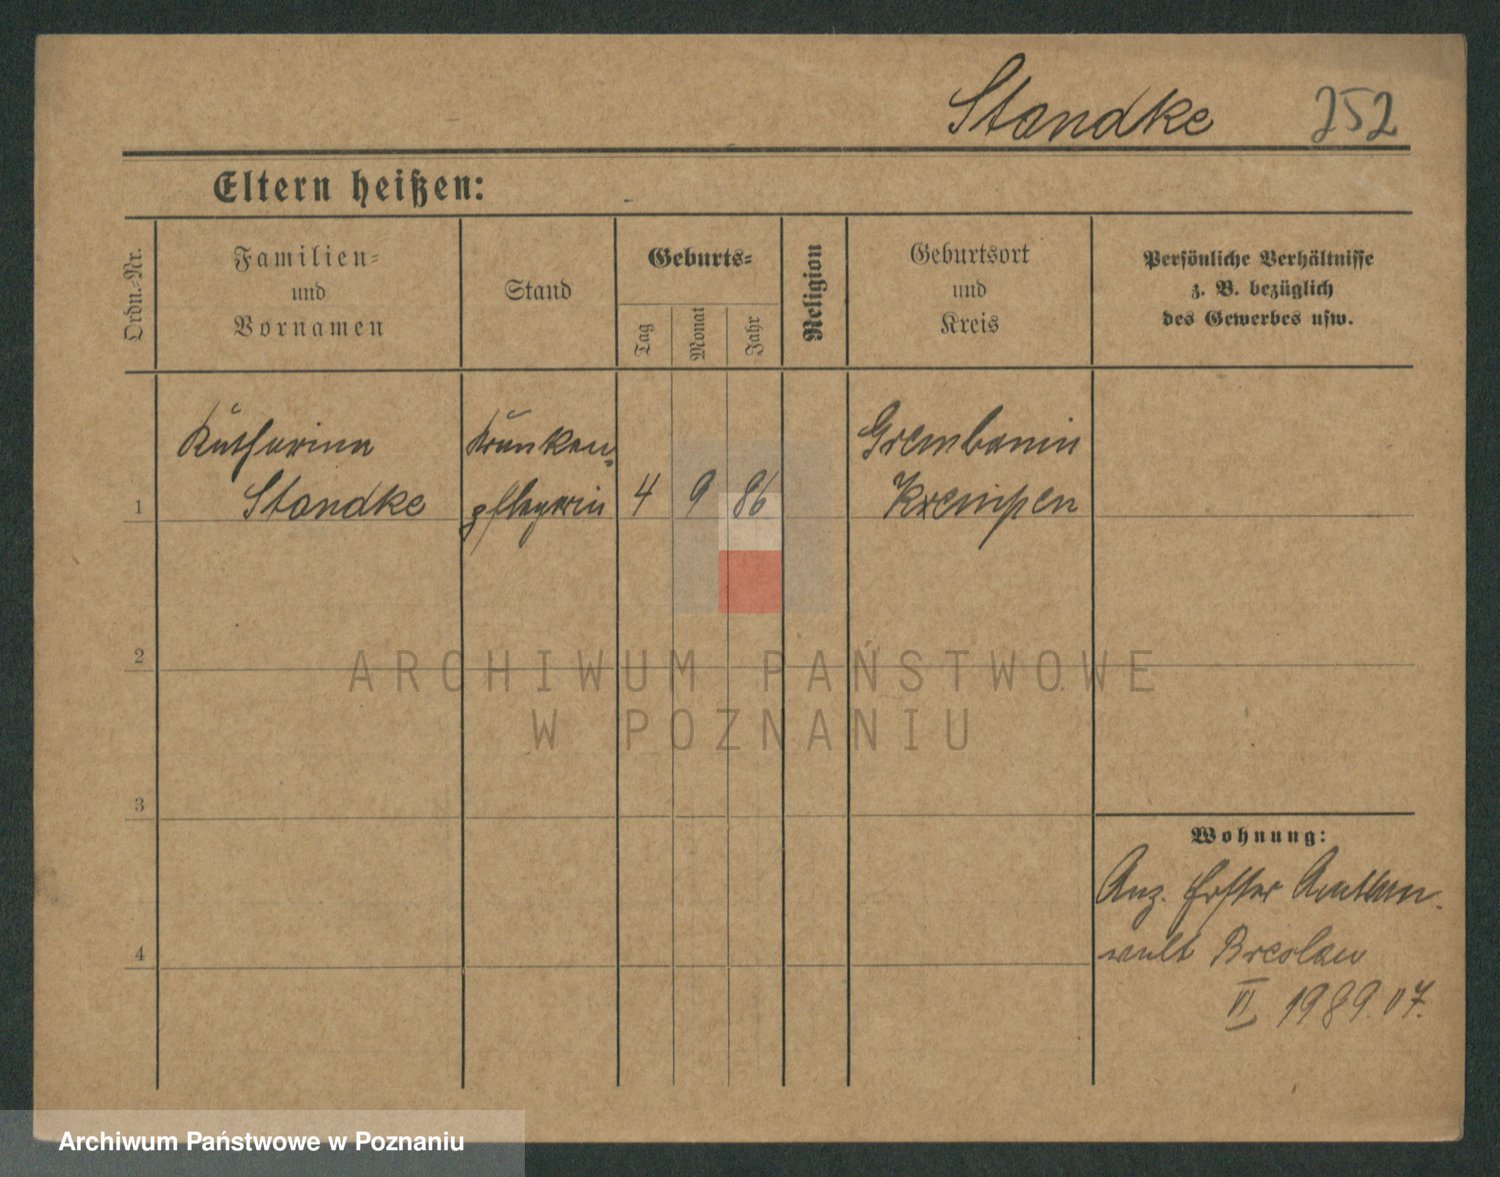 Standke 252
Eltern heißen:
Ordn.-Nr.
Familien-
und
Vornamen
Stand
Geburts-
Tag
Monat
Jahr
Religion
Geburtsort
und
Kreis
Persönliche Verhältnisse
z. B. bezüglich
des Gewerbes usw.
Katharina
Standke
Kranken-
pflegerin
4 9 86
Grembanin
Krempen
1
2
3
4
Wohnung:
Anz. Erster Amtsan-
walt Breslau
VI 1989.07.
ARCHIWUM PAŃSTWOWE
W POZNANIU
Archiwum Państwowe w Poznaniu